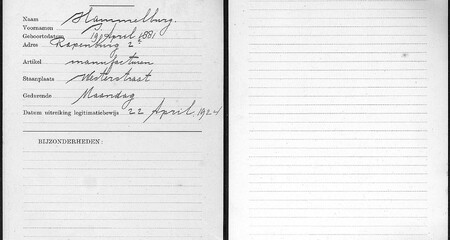 Naam Hammelburg.
Voornamen S.
Geboortedatum 19 April 1881
Adres Rapenburg 2
Artikel manufacturen
Staanplaats Westerstraat
Gedurende Maandag
Datum uitreiking legitimatiebewijs 22 April 1924
BIJZONDERHEDEN: